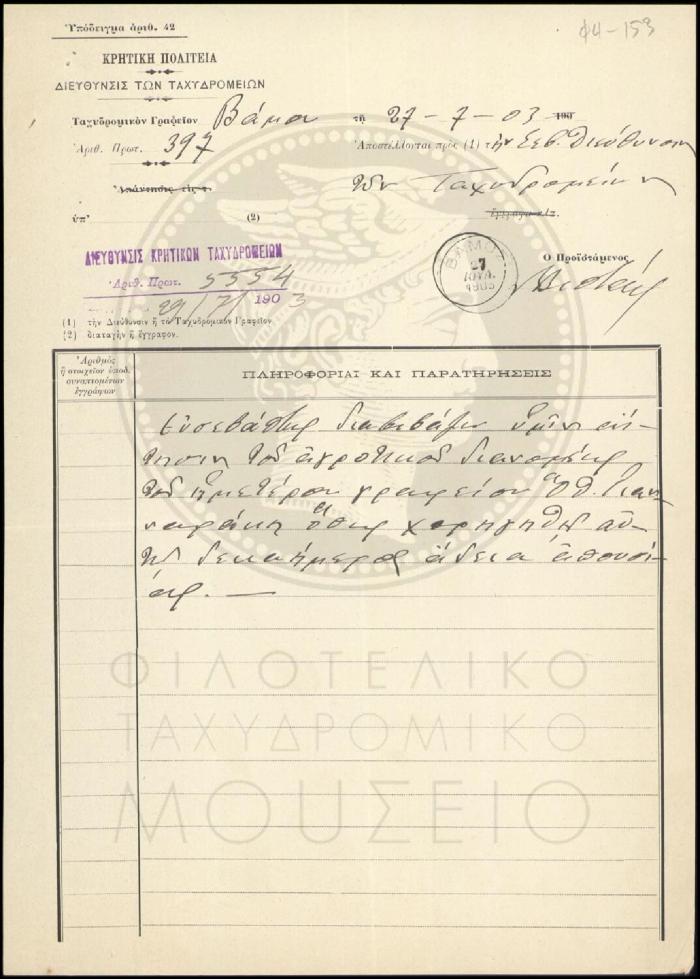 Ὑπόδειγμα ἀριθ. 42
φ4-153
ΚΡΗΤΙΚΗ ΠΟΛΙΤΕΙΑ
ΔΙΕΥΘΥΝΣΙΣ ΤΩΝ ΤΑΧΥΔΡΟΜΕΙΩΝ
Ταχυδρομικὸν Γραφεῖον Βάμου τῇ 27-7-03 190
Ἀριθ. Πρωτ. 397 Ἀποστέλλονται πρὸς (1) τὴν Σεβ. Διεύθυνσιν
Ἀπάντησις εἰς τ. τῶν Ταχυδρομείων
ὑπ' (2)
ΔΙΕΥΘΥΝΣΙΣ ΚΡΗΤΙΚΩΝ ΤΑΧΥΔΡΟΜΕΙΩΝ
Ἀριθ. Πρωτ. 5554
29/7/1903
ΒΑΜΟΣ
27
ΙΟΥΛ.
Ὁ Προϊστάμενος
(1) τὴν Διεύθυνσιν ἢ τὸ Ταχυδρομικὸν Γραφεῖον
(2) διαταγὴν ἢ ἔγγραφον.
Ἀριθμὸς
ἢ στοιχεῖον ὑποδ.
συναπτομένων
ἐγγράφων
ΠΛΗΡΟΦΟΡΙΑΙ ΚΑΙ ΠΑΡΑΤΗΡΗΣΕΙΣ
Εὐσεβάστως διαβιβάζω ὑμῖν αἴ-
τησιν τοῦ ἀγροτικοῦ διανομέως
τοῦ ἡμετέρου γραφείου Γιαν-
ναράκη ὅπως χορηγηθῇ αὐ-
τῷ δεκαήμερος ἄδεια ἀπουσί-
ας. —
ΦΙΛΟΤΕΛΙΚΟ
ΤΑΧΥΔΡΟΜΙΚΟ
ΜΟΥΣΕΙΟ